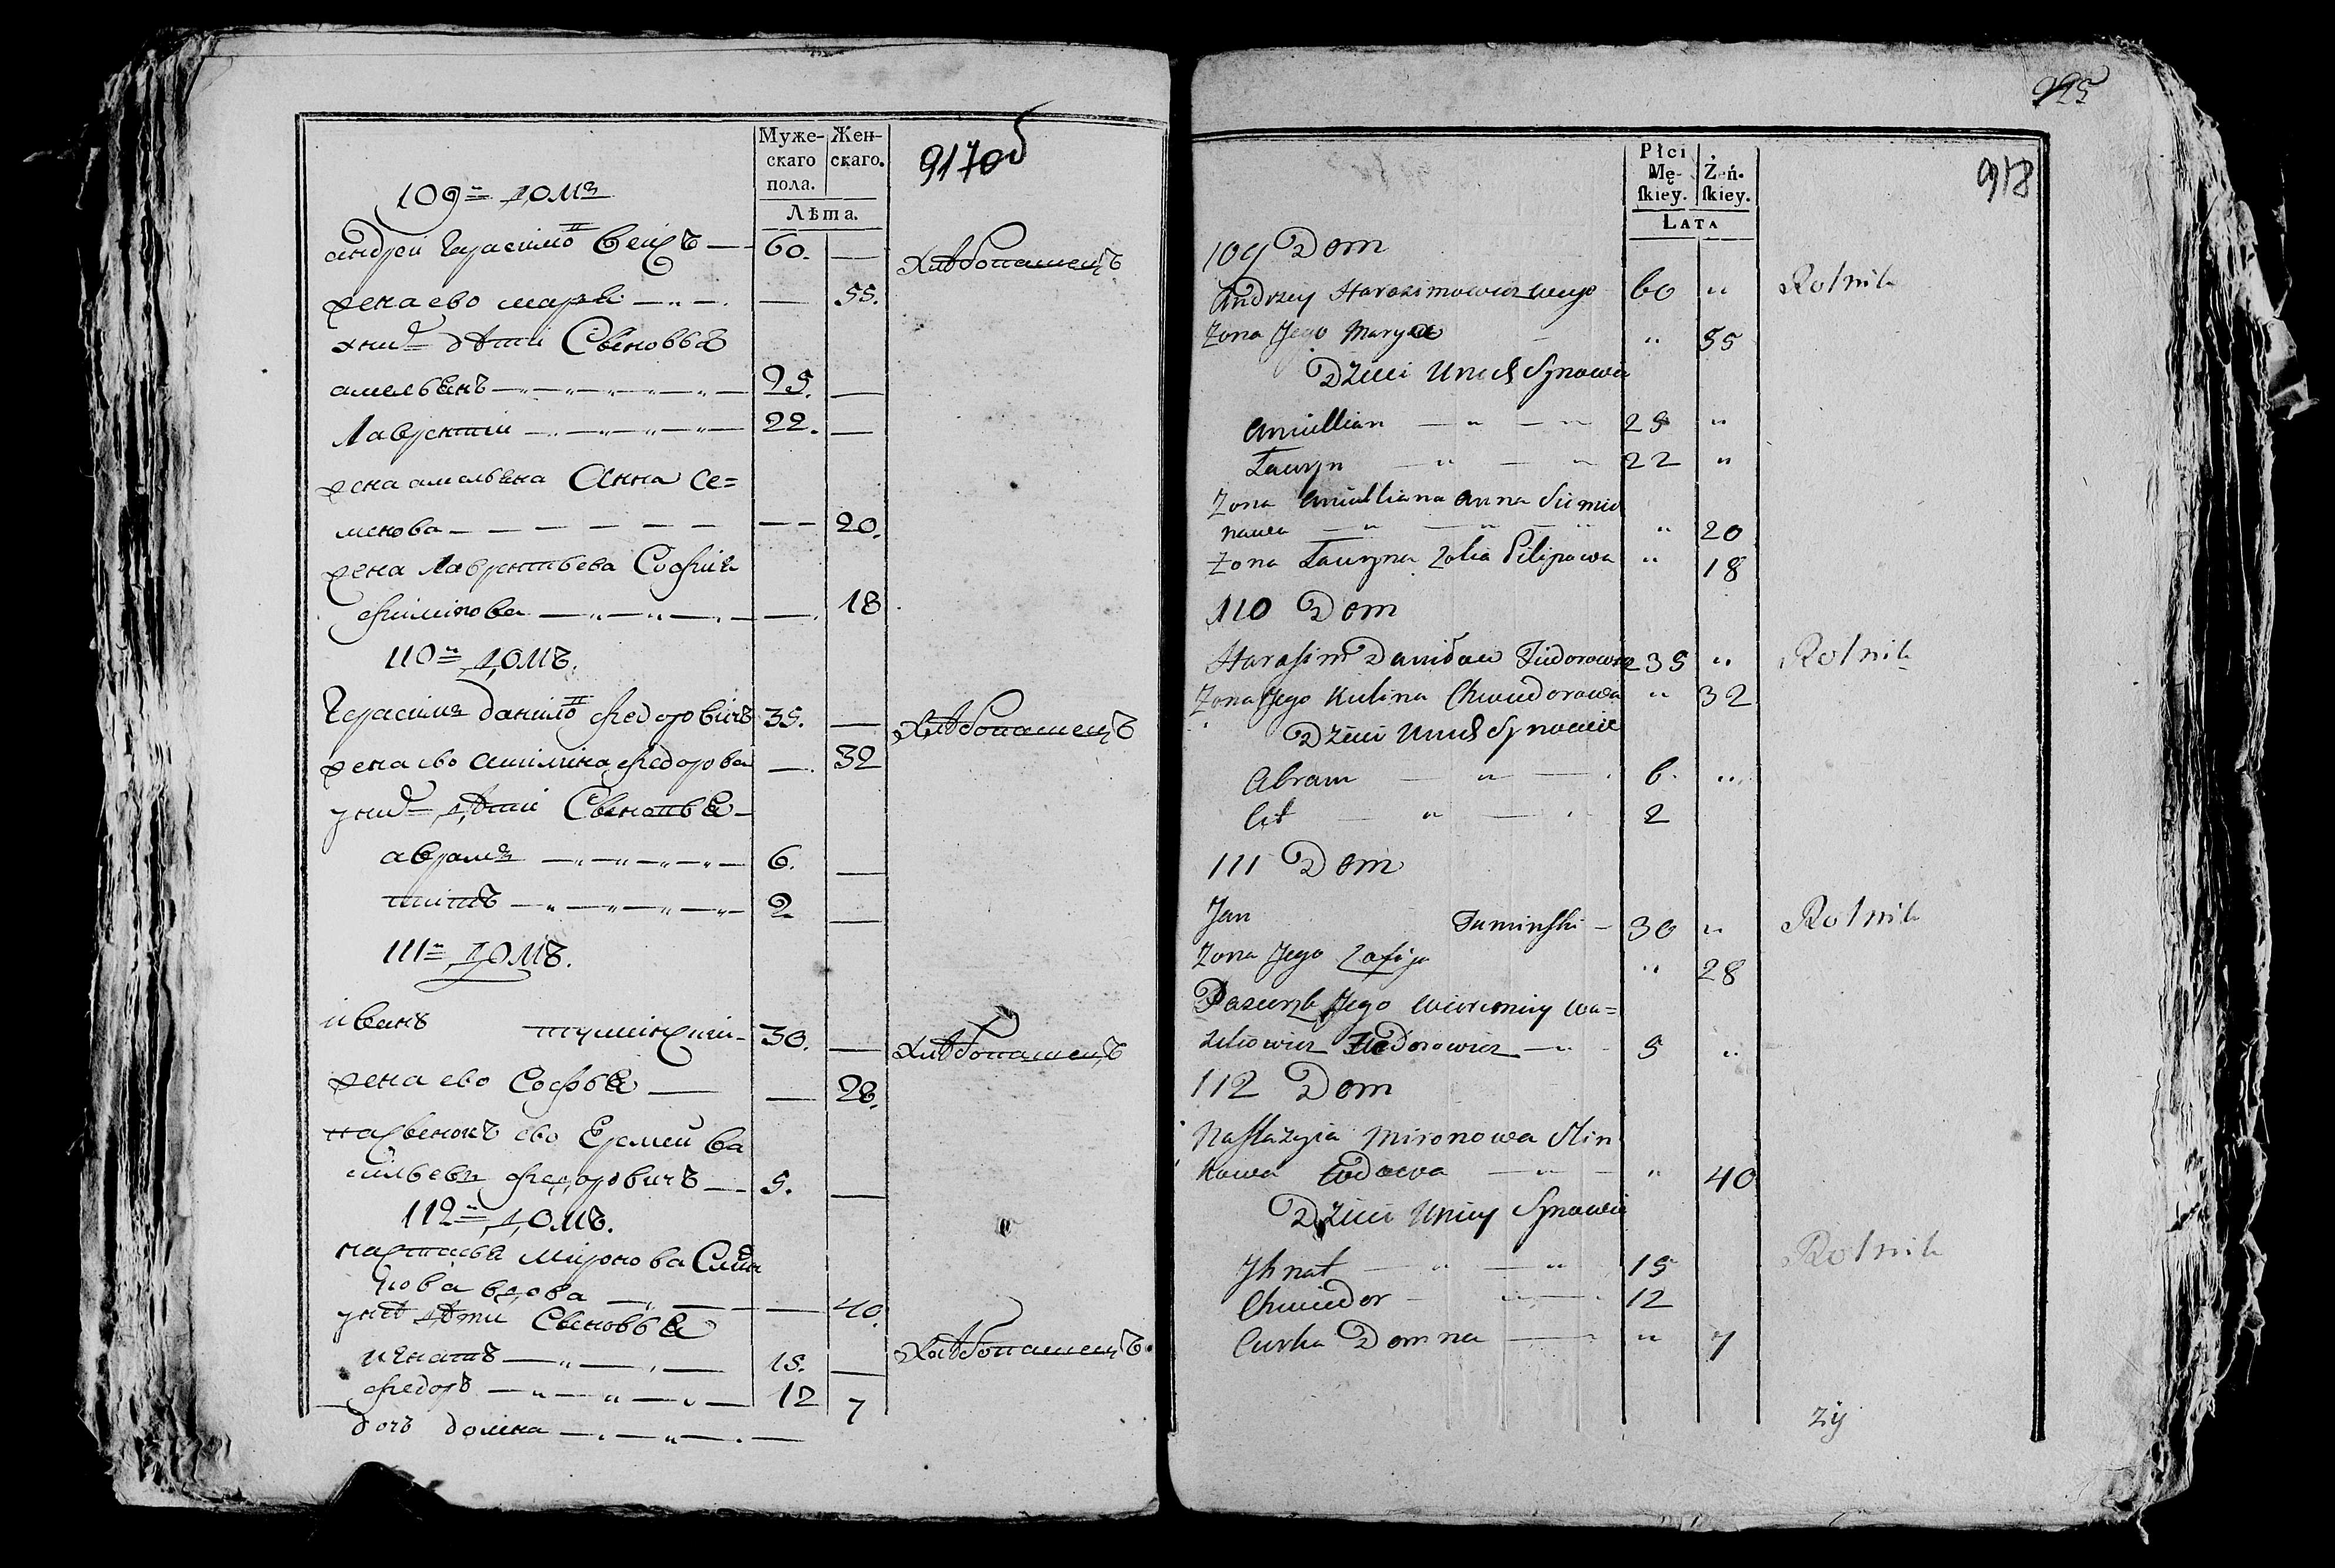 Муже-
скаго
пола.
Жен-
скаго.
Лѣта.
917об
109 домъ
андрей Герасимо
60. —
хлѣбопашецъ
жена ево марья — 55.
у нихъ дѣти Сыновья
амельянъ — 25. —
Лаврентій — 22. —
жена амельяна Анна Се=
менова — — 20.
жена Лаврентьева Софія
филипова — — 18
110 домъ.
Герасимъ данило федоровичъ 35. —
хлѣбопашецъ
жена ево акилина федорова — 32
у нихъ дѣти Сыновья
аврамъ — 6. —
титъ — 2 —
111 домъ.
иванъ туминскій 30. —
хлѣбопашецъ
жена ево Софья — — 28.
пасынокъ ево Еремей Ва
сильевъ федоровичъ — 5. —
112 домъ.
настасья Миронова
кова вдова — — 40.
у неи дѣти Сыновья
хлѣбопашецъ.
игнатъ — 15. —
федоръ — 12
дочь домна — 7
918
Płci
Mę-
ſkiey.
Żeń-
ſkiey.
LATA
109 Dom
Andrzey Harasimowicz 60 "
Rolnik
Zona Jego Marya " 55
Dzieci Unich Synowie
Amillian — " — " 25 "
Lauryn — " — " 22 "
Zona Amilliana Anna Simio
nowa — " — " " 20
Zona Lauryna Zofia Pilipowa " 18
110 Dom
Harasim Daniłow Fiodorowicz 35 "
Rolnik
Zona Jego Kulina Chwiedorowa " 32
Dzieci Unich Synowie
Abram — " — 6. "
Cit — " — 2
111 Dom
Jan Tuminski — 30 "
Rolnik
Zona Jego Zofija " 28
Pasierzb Jego Wieremiey Wa=
zilowicz Fiedorowicz — " 5 "
112 Dom
Nastazyia Mironowa Slin
kowa wdowa — " — " 40
Dzieci Uniey Synowie
Jhnat — " — " 15
Rolnik
Chwiedor — " — 12
Curka Domna — " 7